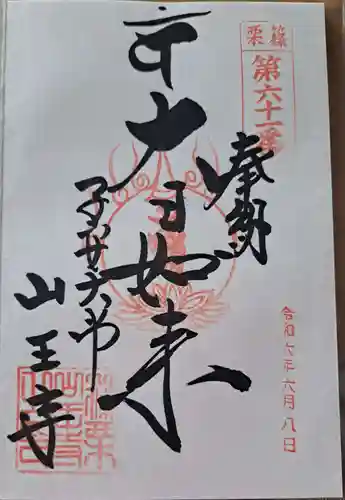 篠栗
第六十一番
奉納
大日如来
子安大師
山王寺
令和六年六月八日